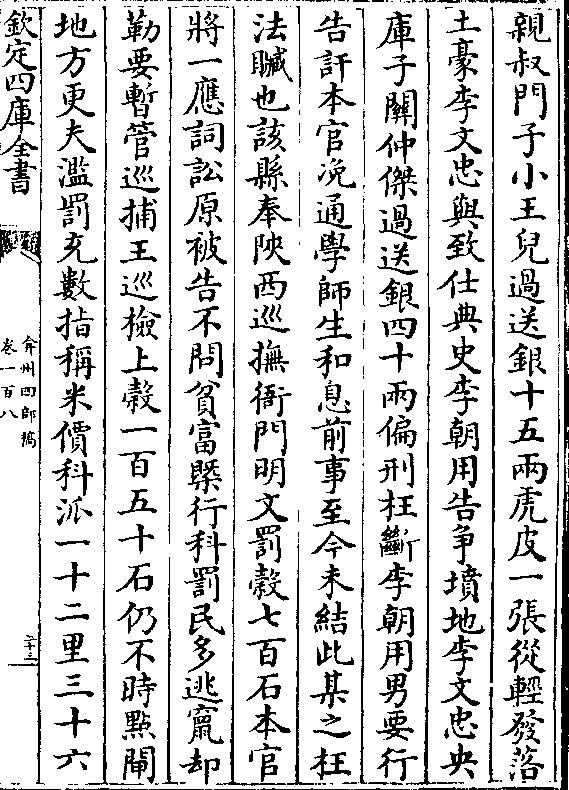 親叔門子小王兒過送銀十五兩虎皮一張從輕發落
土豪李文忠與致仕典史李朝用告爭墳地李文忠央
庫子關仲傑過送銀四十兩偏刑枉斷李朝用男要行
告訐本官浼通學師生和息前事至今未結此某之枉
法贓也該縣奉陜西巡撫衙門明文罰榖七百石本官
將一應詞訟原被告不問貧富槩行科罰民多逃竄却
勒要暫管巡捕王巡檢上榖一百五十石仍不時點閘
地方更夫濫罰充數指稱米價科派一十二里三十六
欽定四庫全書
弇州四部稿
卷一百八
三十三